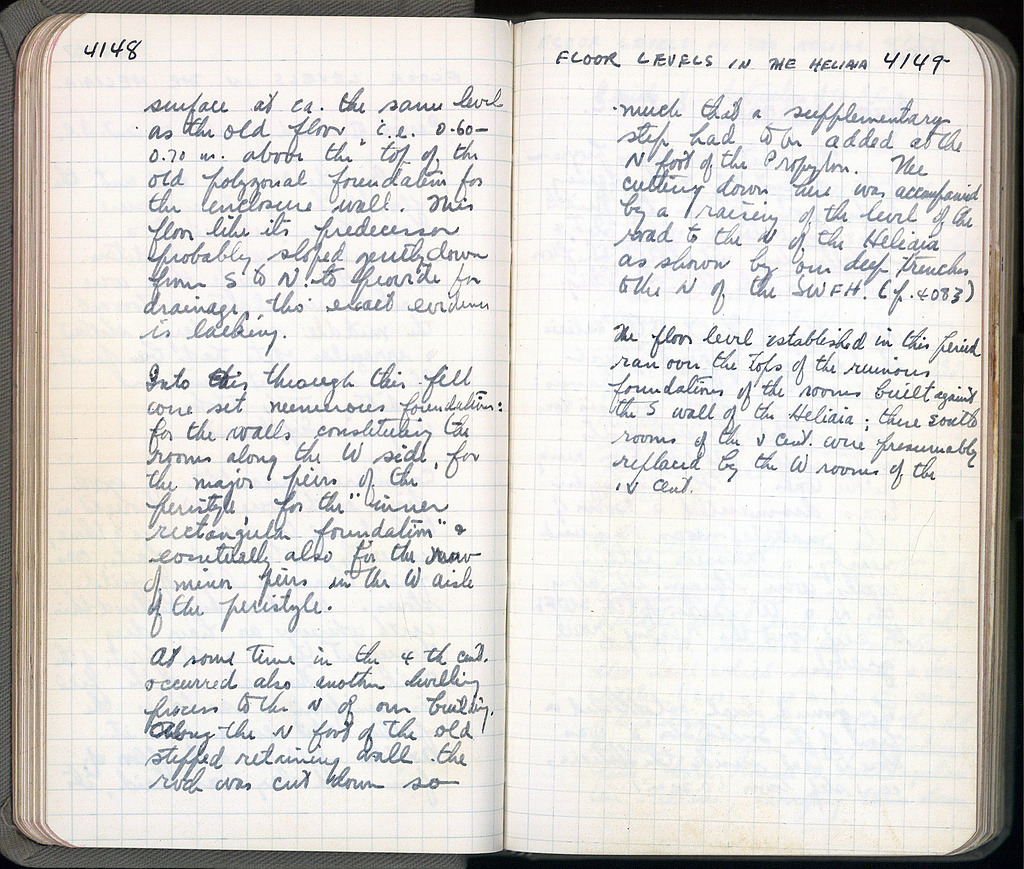 4148
surface at ca. the same level
as the old floor i.e. 0.60–
0.70 m. above the top of the
old polygonal foundation for
the enclosure wall. This
floor like its predecessor
probably sloped gently down
from S to N to provide for
drainage, tho exact evidence
is lacking.
Into this through this fill
were set numerous foundations:
for the walls constituting the
rooms along the W side, for
the major piers of the
peristyle for the "inner
rectangular foundation" &
eventually also for the row
of minor piers in the W aisle
of the peristyle.
At some time in the 4th cent.
occurred also another levelling
process to the N of our building.
Along the N foot of the old
stepped retaining wall the
rock was cut down so
FLOOR LEVELS IN THE HELIAIA 4149
much that a supplementary
step had to be added at the
N foot of the Propylon. The
cutting down here was accompanied
by a raising of the level of the
road to the N of the Heliaia
as shown by our deep trenches
to the N of the SWFH. (p. 4083)
The floor level established in this period
ran over the tops of the ruinous
foundations of the rooms built against
the S wall of the Heliaia; these south
rooms of the v cent. were presumably
replaced by the W rooms of the
iv cent.